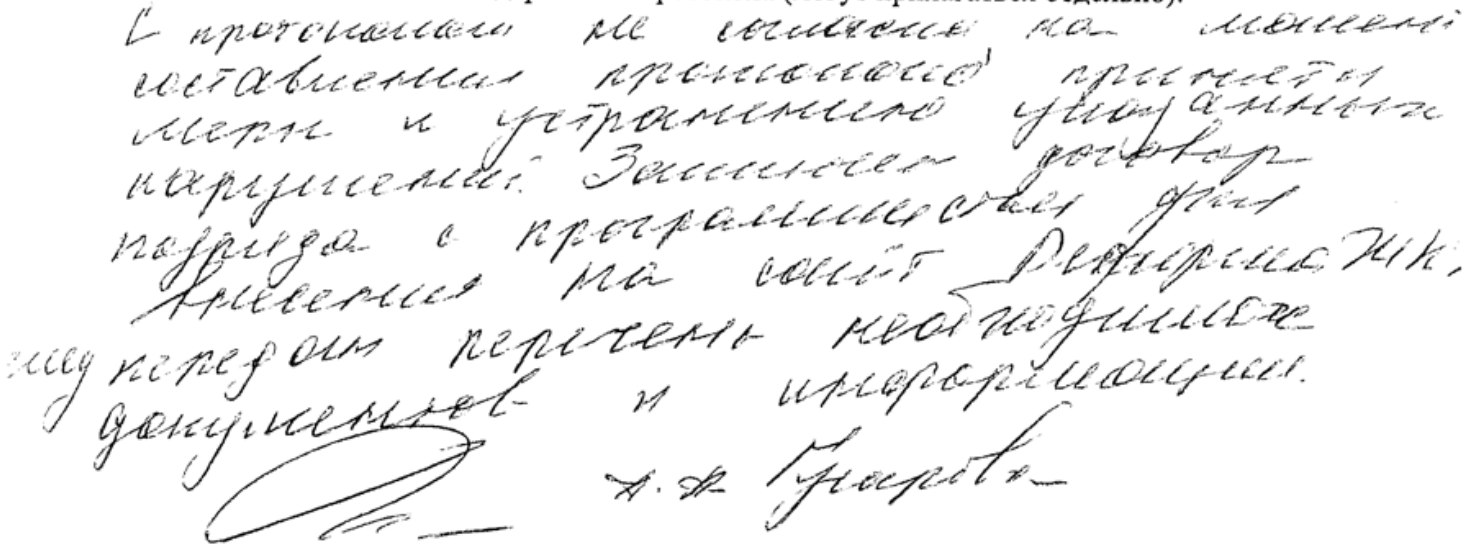 (могут прилагаться отдельно).
С протоколом не согласна на момент
составления протокола приняты
меры к устранению указанных
нарушений. Заключен договор
подряда с программистом для
внесения на сайт Реформа ЖКХ,
ему передан перечень необходимых
документов и информации.